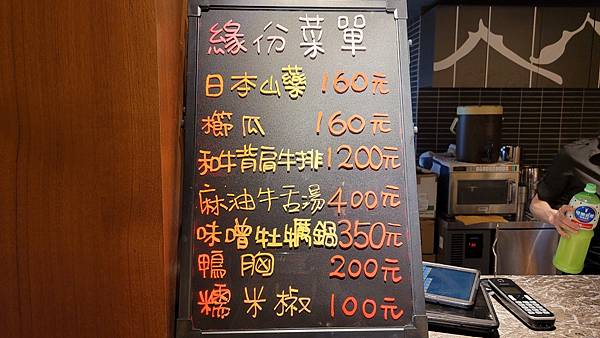 緣份菜單
日本山藥 160元
櫛瓜 160元
和牛背肩牛排1200元
麻油牛舌湯400元
味噌牡蠣鍋350元
鴨胸 200元
糯米椒 100元